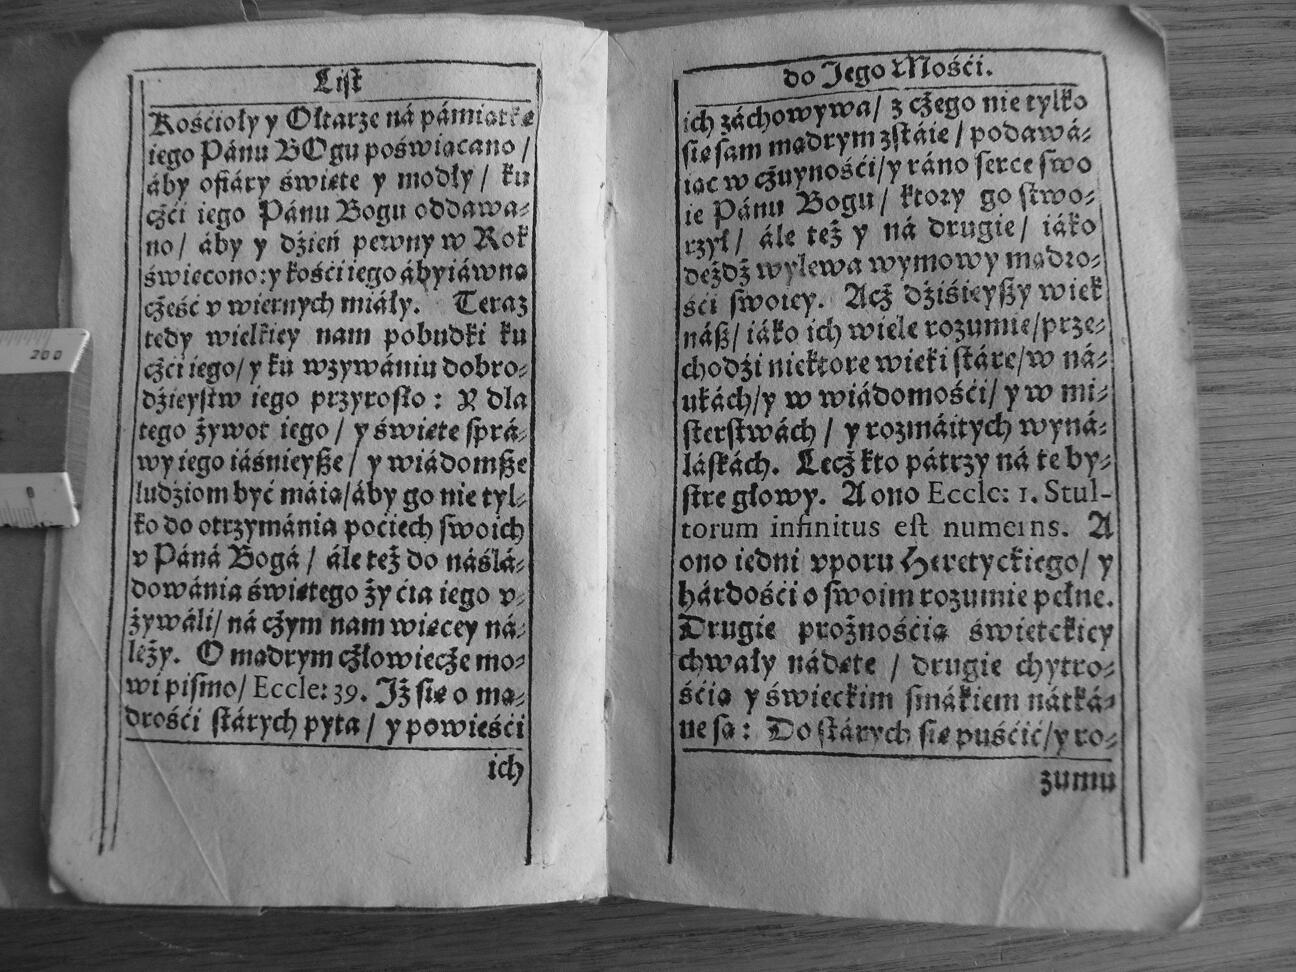 List
Kośćioły y Ołtarze ná pámiątkę
iego Pánu BOgu poświącano /
áby ofiáry święte y modły / ku
cżći iego Pánu Bogu oddawa-
no / áby y dżień pewny w Rok
święcono: y kośći iego ábyiáwną
cżeść v wiernych miáły. Teraz
tedy wielkiey nam pobudki ku
cżći iego/ y ku wzywániu dobro-
dżieystw iego przyrosło : Y dla
tego żywot iego / y święte sprá-
wy iego iáśnieyße / y wiádomße
ludżiom być máią/áby go nie tyl-
ko do otrzymánia pociech swoich
v Páná Bogá / ále też do náślá-
dowánia świętego ży ćia iego v-
żywáli/ ná cżym nam więcey ná-
leży. O mądrym cżłowiecże mo-
wi pismo/ Eccle: 39. Iż się o mą-
drośći stárych pyta / y powieśći
ich
200
0
do Jego Mośći.
ich záchowywa/ z cżego nie tylko
się sam mądrym zstáie / podawá-
iąc w cżuynośći/y ráno serce swo
ie Pánu Bogu / ktory go stwo-
rzył / ále też y ná drugie / iáko
deżdż wylewa wymowy mądro-
śći swoiey. Acż dżiśieyßy wiek
náß/ iáko ich wiele rozumie/prze-
chodżi niektore wieki stáre/w ná-
ukách/y w wiádomośći/ y w mi-
sterstwách / y rozmáitych wyná-
láskách. Lecż kto pátrzy ná te by-
stre głowy. A ono Eccle: 1. Stul-
torum infinitus est numerus. A
ono iedni vporu Heretyckiego/ y
hárdośći o swoim rozumie pełne.
Drugie prożnośćią świetckiey
chwały nádęte / drugie chytro-
śćią y świeckim smákiem nátká-
ne są : Do stárych się puśćić/y ro-
zumu